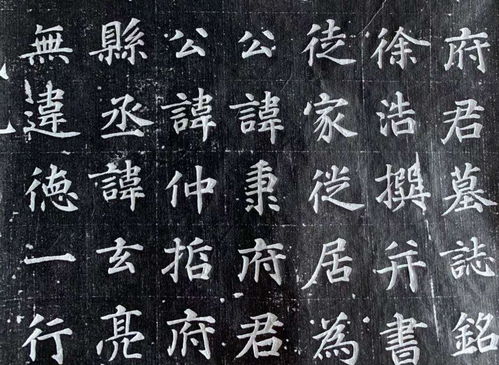 府君墓誌銘
徐浩撰并書
徒家従居為
公諱秉府君
公諱仲府
縣丞諱玄亮
無違徳一行